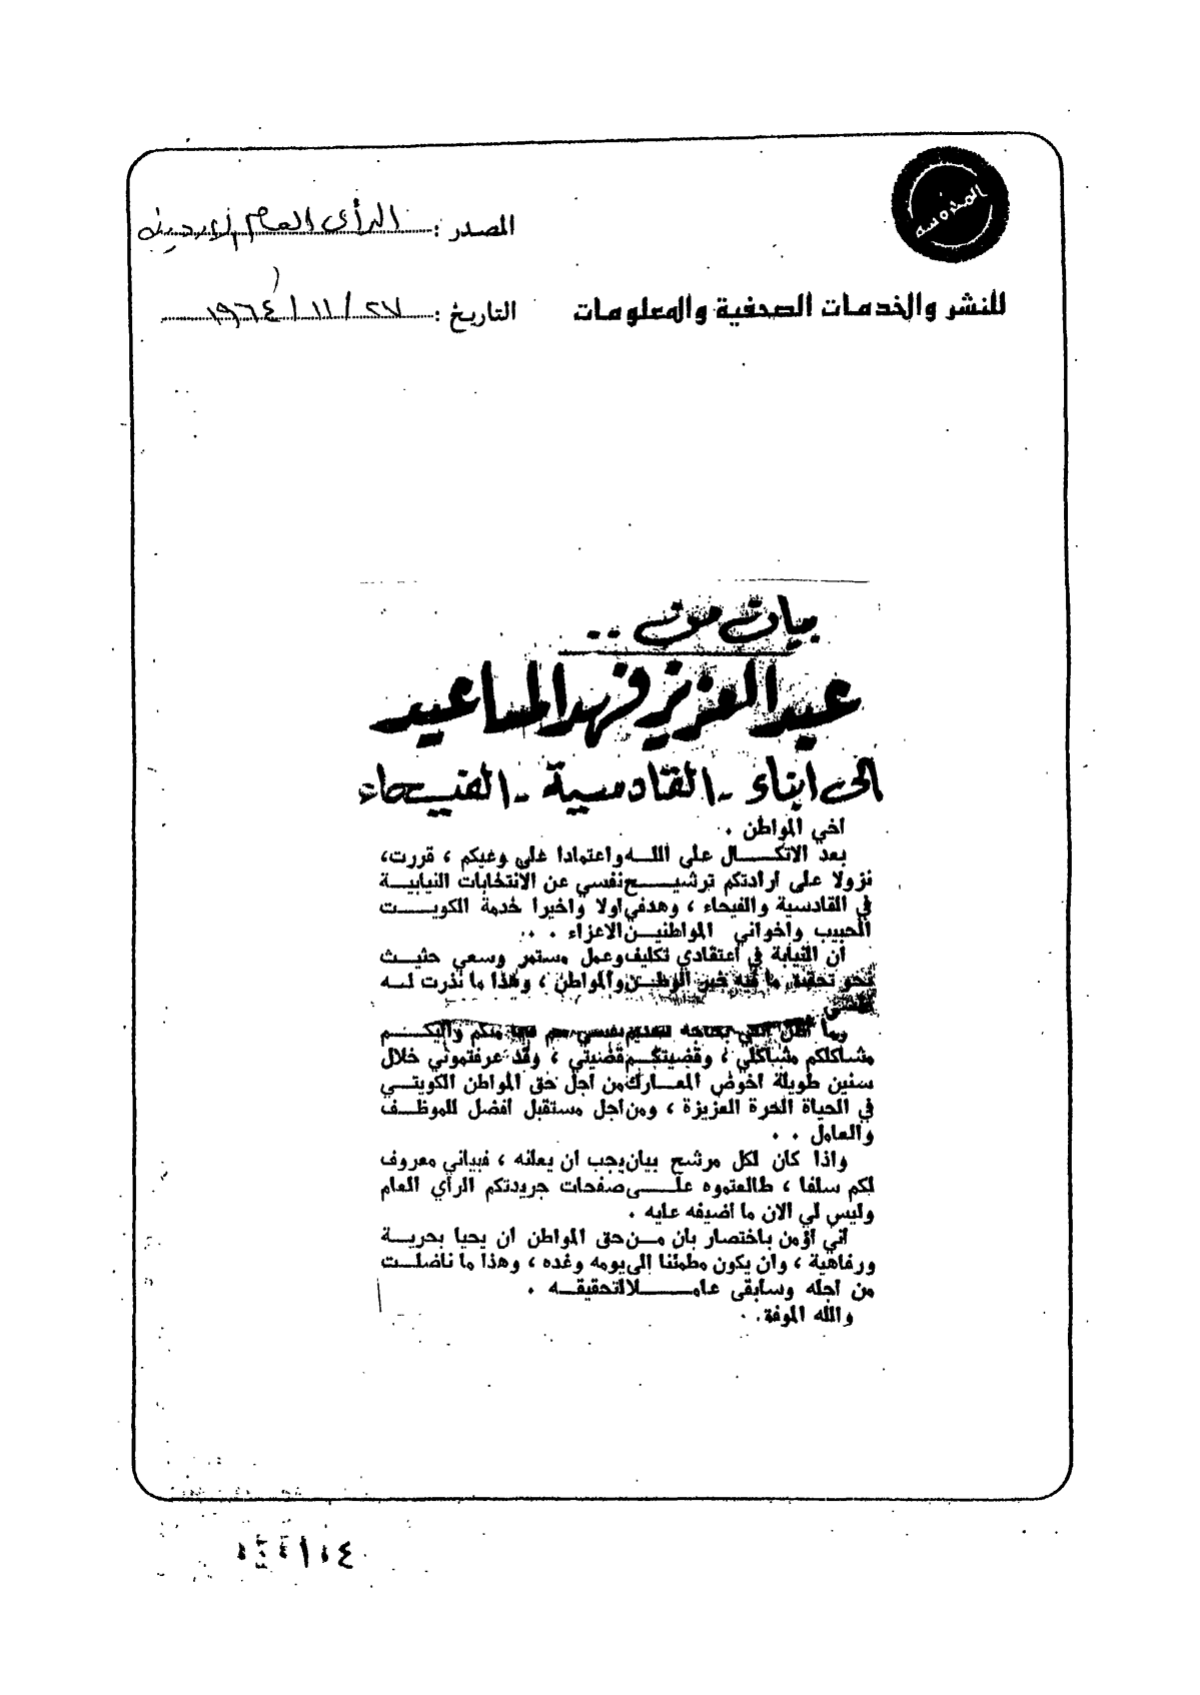 المصدر : الرأى العام
للنشر والخدمات الصحفية والمعلومات
التاريخ : ٢٧ / ١١ / ١٩٦٤
بيان من ..
عبد العزيز فهد المساعيد
الى ابناء - القادسية - الفيحاء
اخي المواطن .
بعد الاتكال على الله واعتمادا على وعيكم ، قررت،
نزولا على ارادتكم ترشيح نفسي عن الانتخابات النيابية
في القادسية والفيحاء ، وهدفي اولا واخيرا خدمة الكويت
الحبيب واخواني المواطنين الاعزاء . ..
ان النيابة في اعتقادي تكليف وعمل مستمر وسعي حثيث
نحو تحقيق ما فيه خير الوطن والمواطن ، وهذا ما نذرت له
نفسي
وما اظن انني بحاجة لتقديم نفسي منكم واليكم
مشاكلكم مشاكلي ، وقضيتكم قضيتي ، وقد عرفتموني خلال
سنين طويلة اخوض المعارك من اجل حق المواطن الكويتي
في الحياة الحرة العزيزة ، ومن اجل مستقبل افضل للموظف
والعامل . .
واذا كان لكل مرشح بيان يجب ان يعلنه ، فبياني معروف
لكم سلفا ، طالعتموه على صفحات جريدتكم الرأي العام
وليس لي الان ما اضيفه عليه .
اني اؤمن باختصار بان من حق المواطن ان يحيا بحرية
ورفاهية ، وان يكون مطمئنا الى يومه وغده ، وهذا ما ناضلت
من اجله وسابقى عاملا لتحقيقه .
والله الموفق .